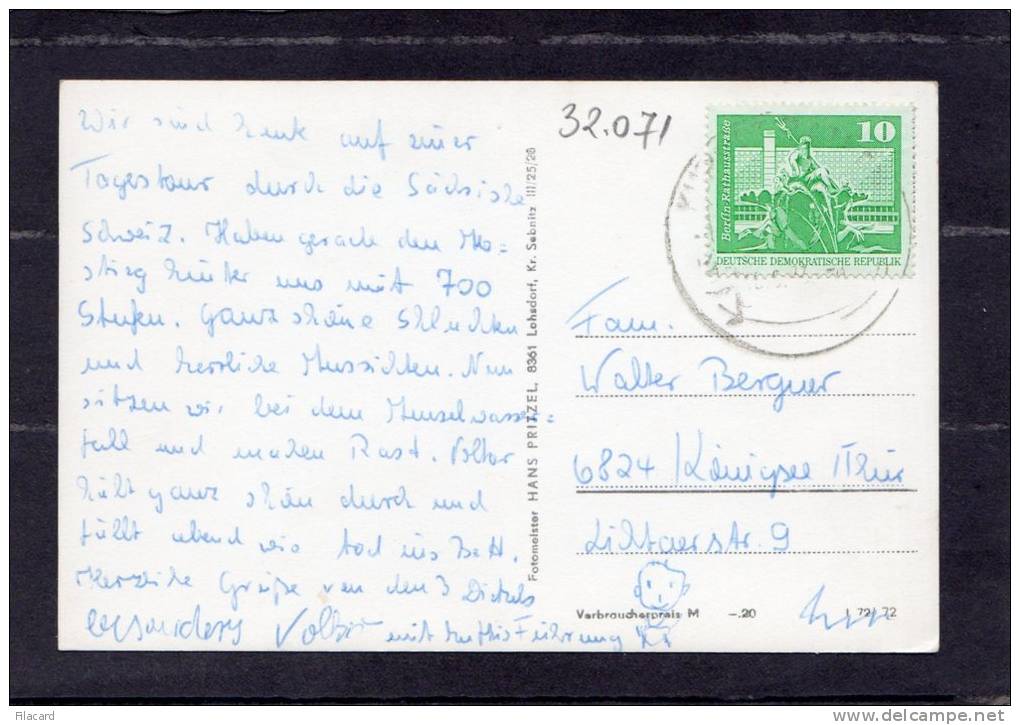 Wir sind heute auf einer
Tagestour durch die Sächsische
Schweiz. Haben gerade den
stieg hinter uns mit 700
Stufen. Ganz schöne Schluchten
und herrliche Aussichten. Nun
sitzen wir bei dem Amselwasser=
fall und machen Rast. Volker
hält ganz schön durch und
fällt abend wie tod ins Bett.
Herzliche Grüße von den 3
besonders mit Führung
Fotomeister HANS PRITZEL, 8361 Lohsdorf, Kr. Sebnitz III/25/28
32.071
10
Berlin-Rathausstraße
DEUTSCHE DEMOKRATISCHE REPUBLIK
Fam.
Walter Bergner
6824 Königsee /Thür
Lichtaerstr. 9
Verbraucherpreis M –.20 72/72
Filacard
delcampe.net